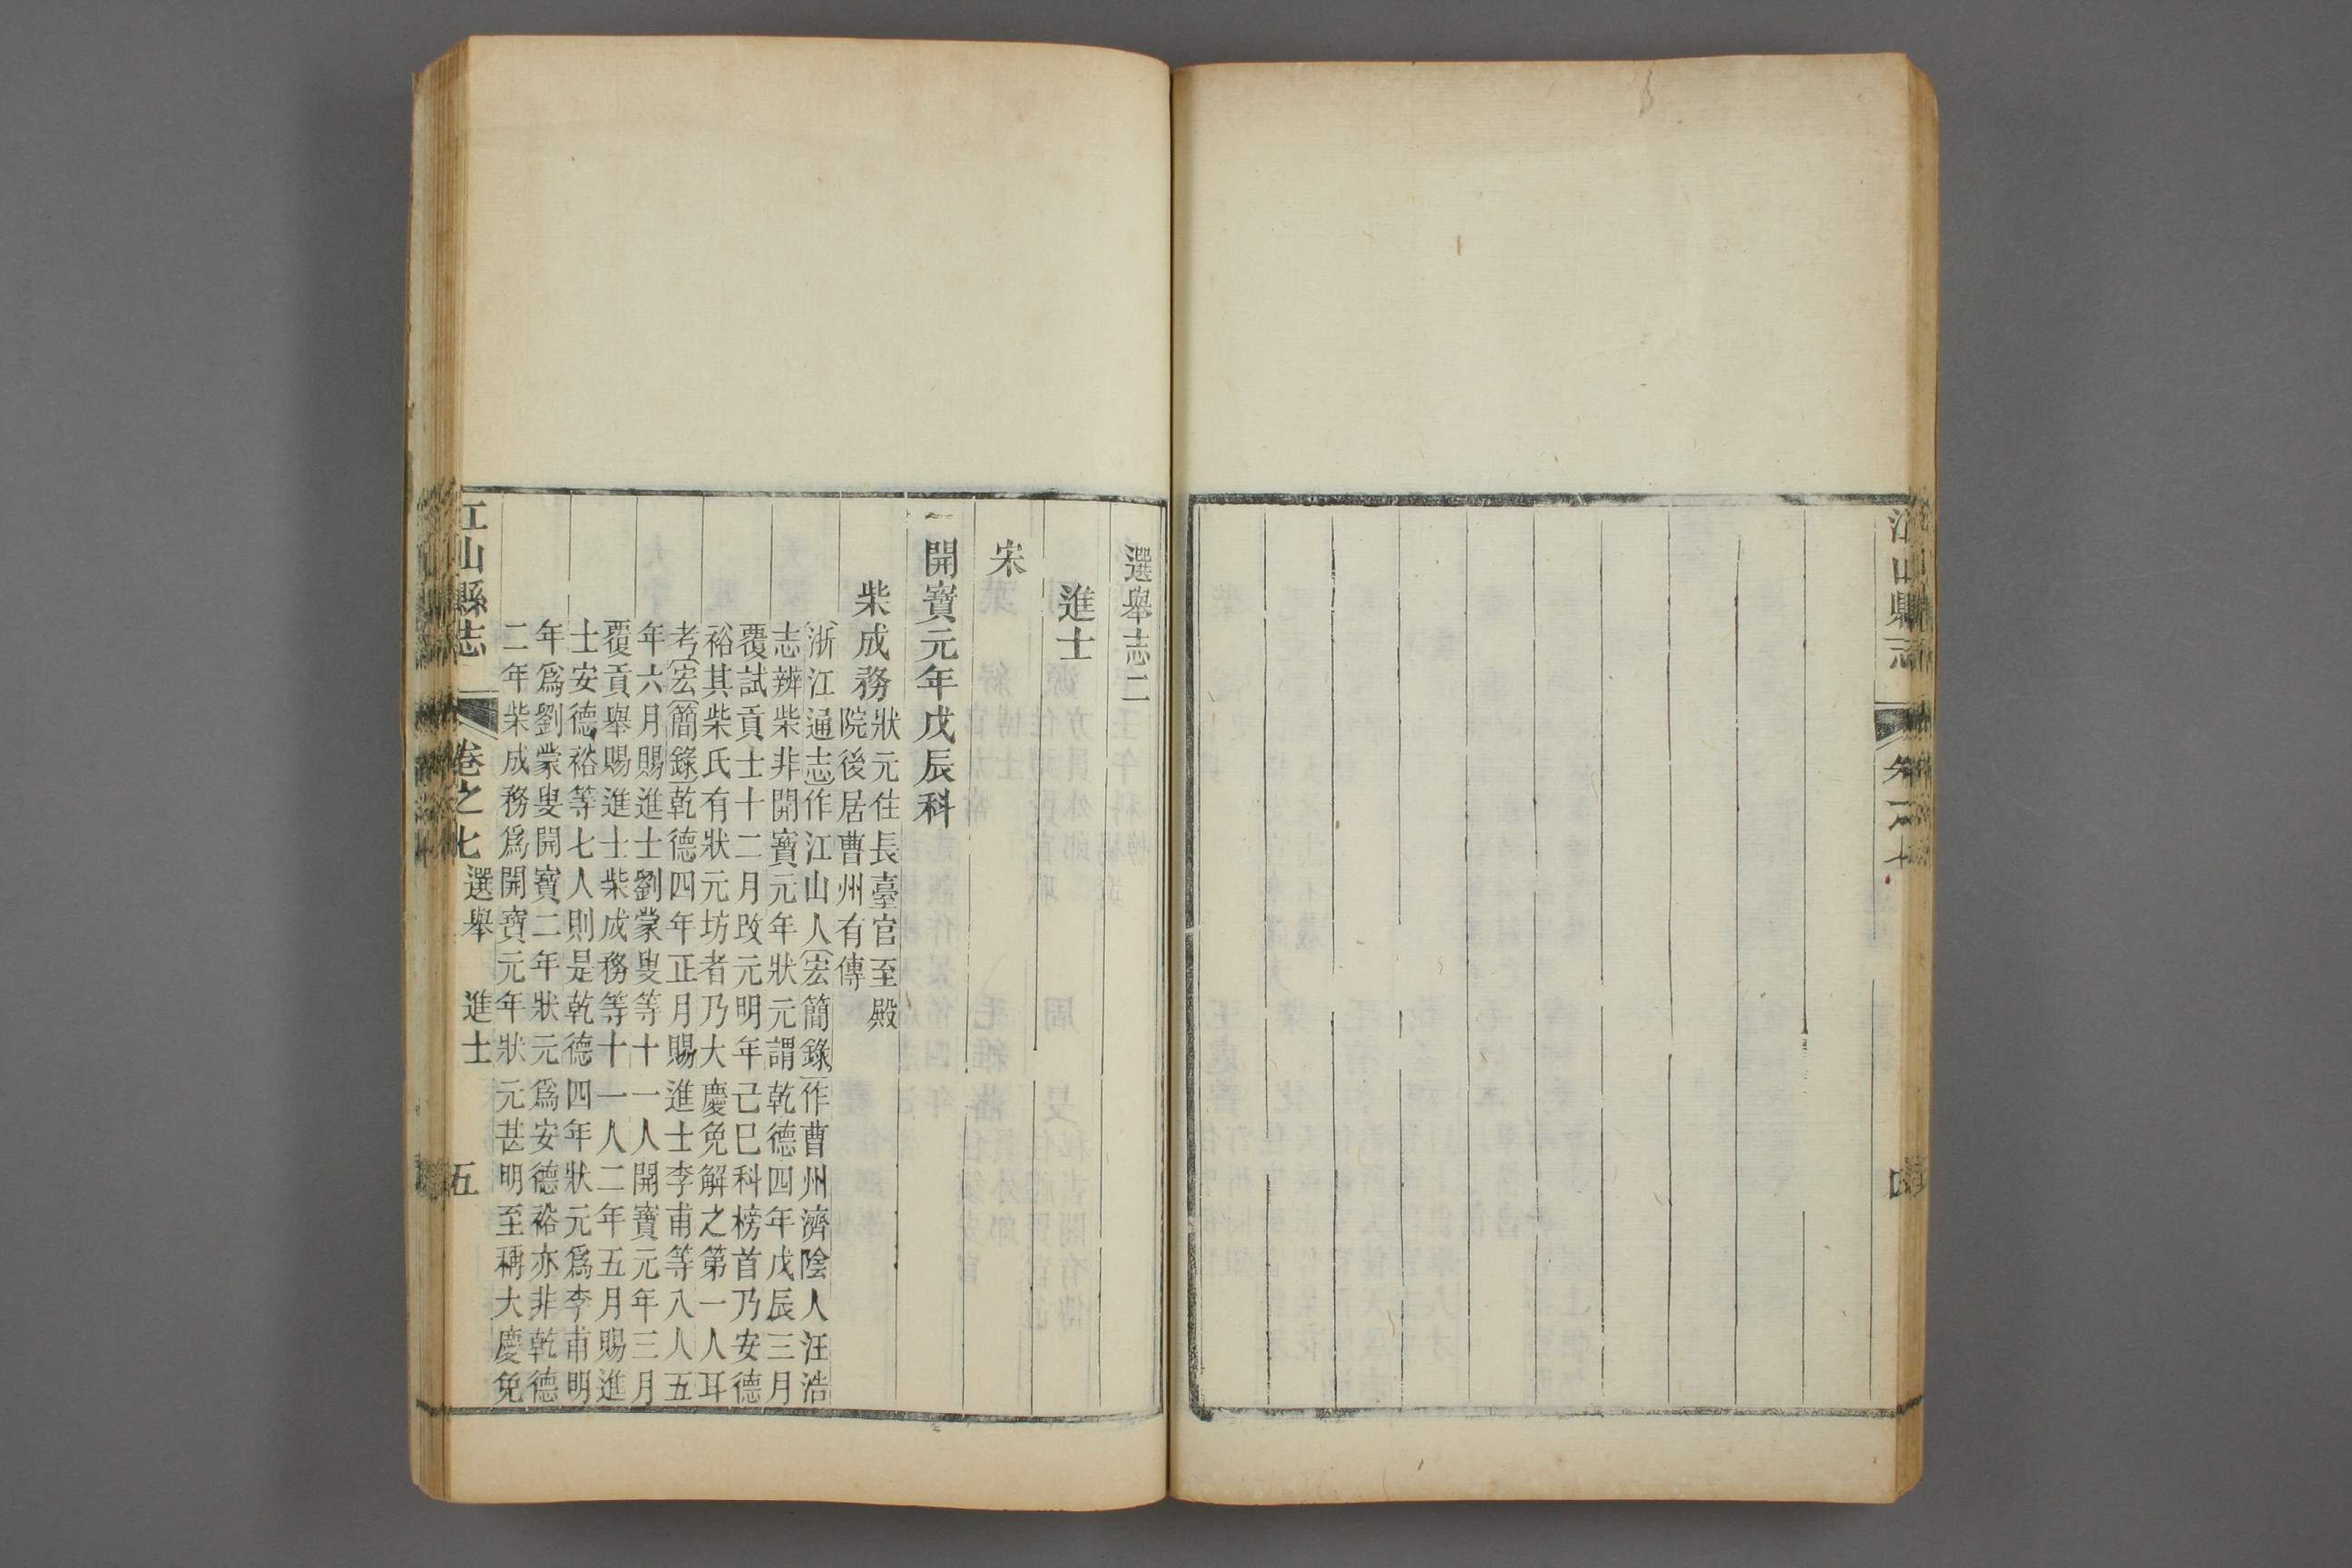 選舉志二
進士
宋
開寶元年戊辰科
柴成務
狀元住長臺官至殿
院後居曹州有傳
浙江通志作江山人宏簡錄作曹州濟陰人汪浩
志辨柴非開寶元年狀元謂乾德四年戊辰三月
覆試貢士十二月改元明年己巳科榜首乃安德
裕其柴氏有狀元坊者乃大慶免解之第一人耳
考宏簡錄乾德四年正月賜進士李甫等八人五
年六月賜進士劉蒙叟等十一人開寶元年三月
覆貢舉賜進士柴成務等十一人二年五月賜進
士安德裕等七人則是乾德四年狀元為李甫明
年爲劉蒙叟開寶二年狀元爲安德裕亦非乾德
二年柴成務爲開寶元年狀元甚明至稱大慶免
江山縣志
卷之七
選舉
進士
五